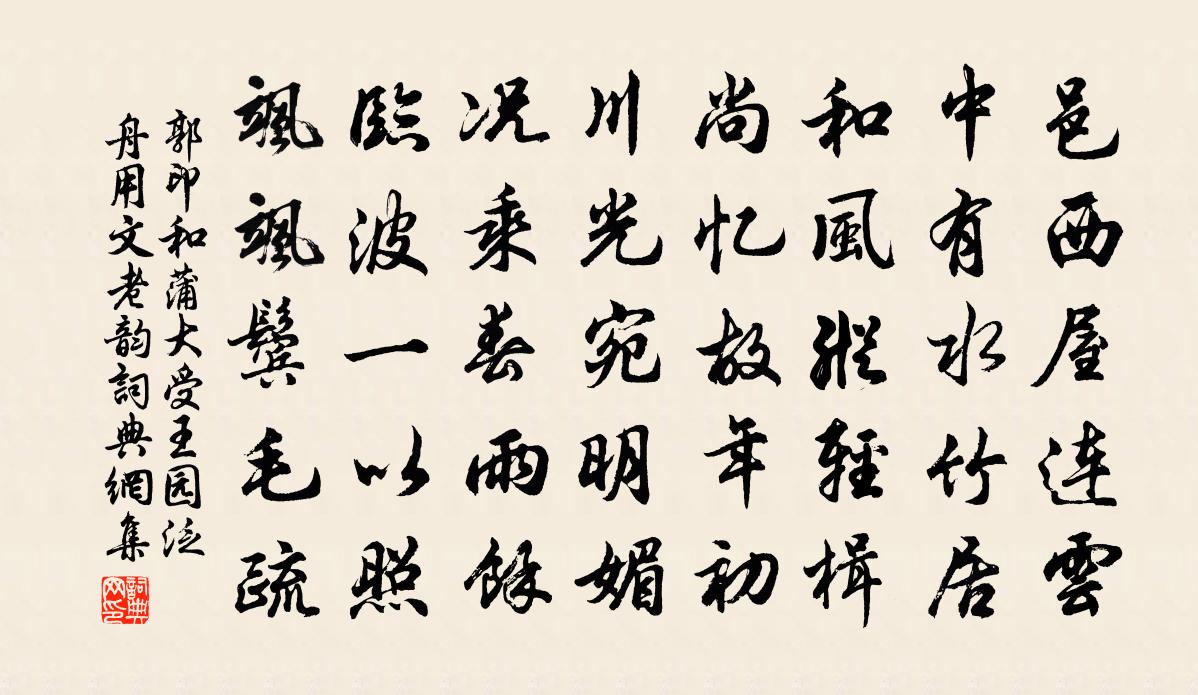 邑西屋連雲
中有水竹居
和風縱輕楫
尚忆故年初
川光宛明媚
况乘春雨餘
臨波一以照
颯颯鬓毛疏
郭印和蒲大受王园泛
舟用文老韵詞典網集
詞典网印